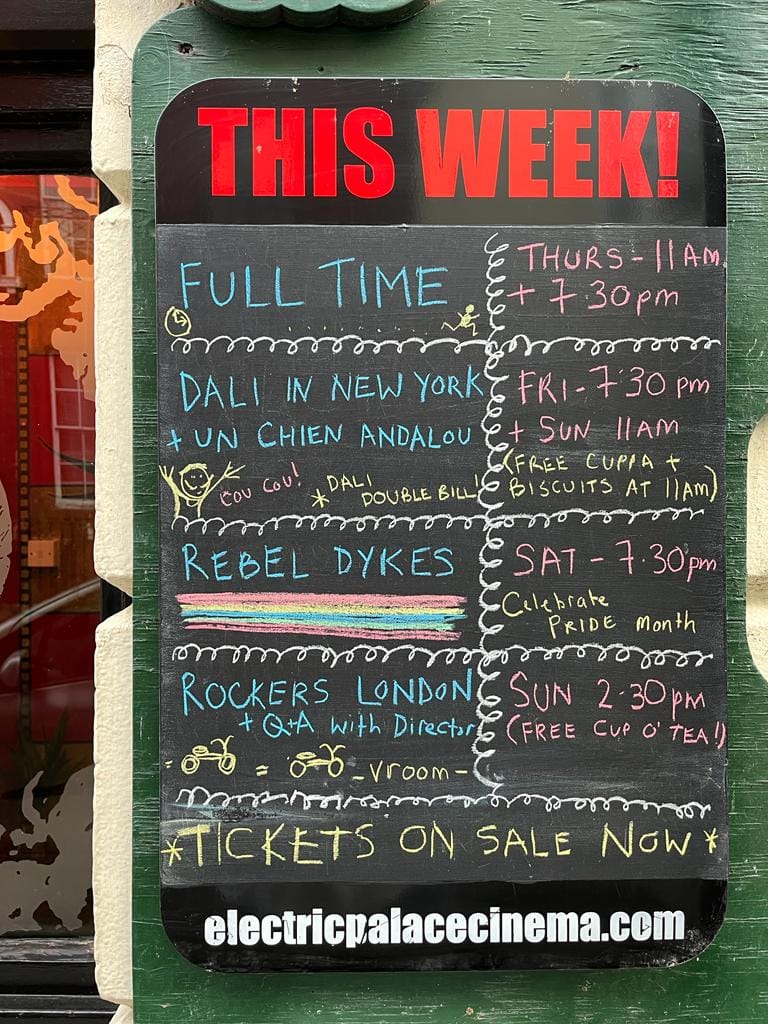 THIS WEEK!
FULL TIME
THURS - 11AM
+ 7 30pm
DALI IN NEW YORK
+ UN CHIEN ANDALOU
COU COU!
* DALI
DOUBLE BILL!
FRI - 7.30 pm
+ SUN 11AM
(FREE CUPPA +
BISCUITS AT 11AM)
REBEL DYKES
SAT - 7.30pm
Celebrate
PRIDE Month
ROCKERS LONDON
+ Q+A With Director
= = - vroom -
SUN 2.30pm
(FREE CUP O' TEA!)
*TICKETS ON SALE NOW*
electricpalacecinema.com